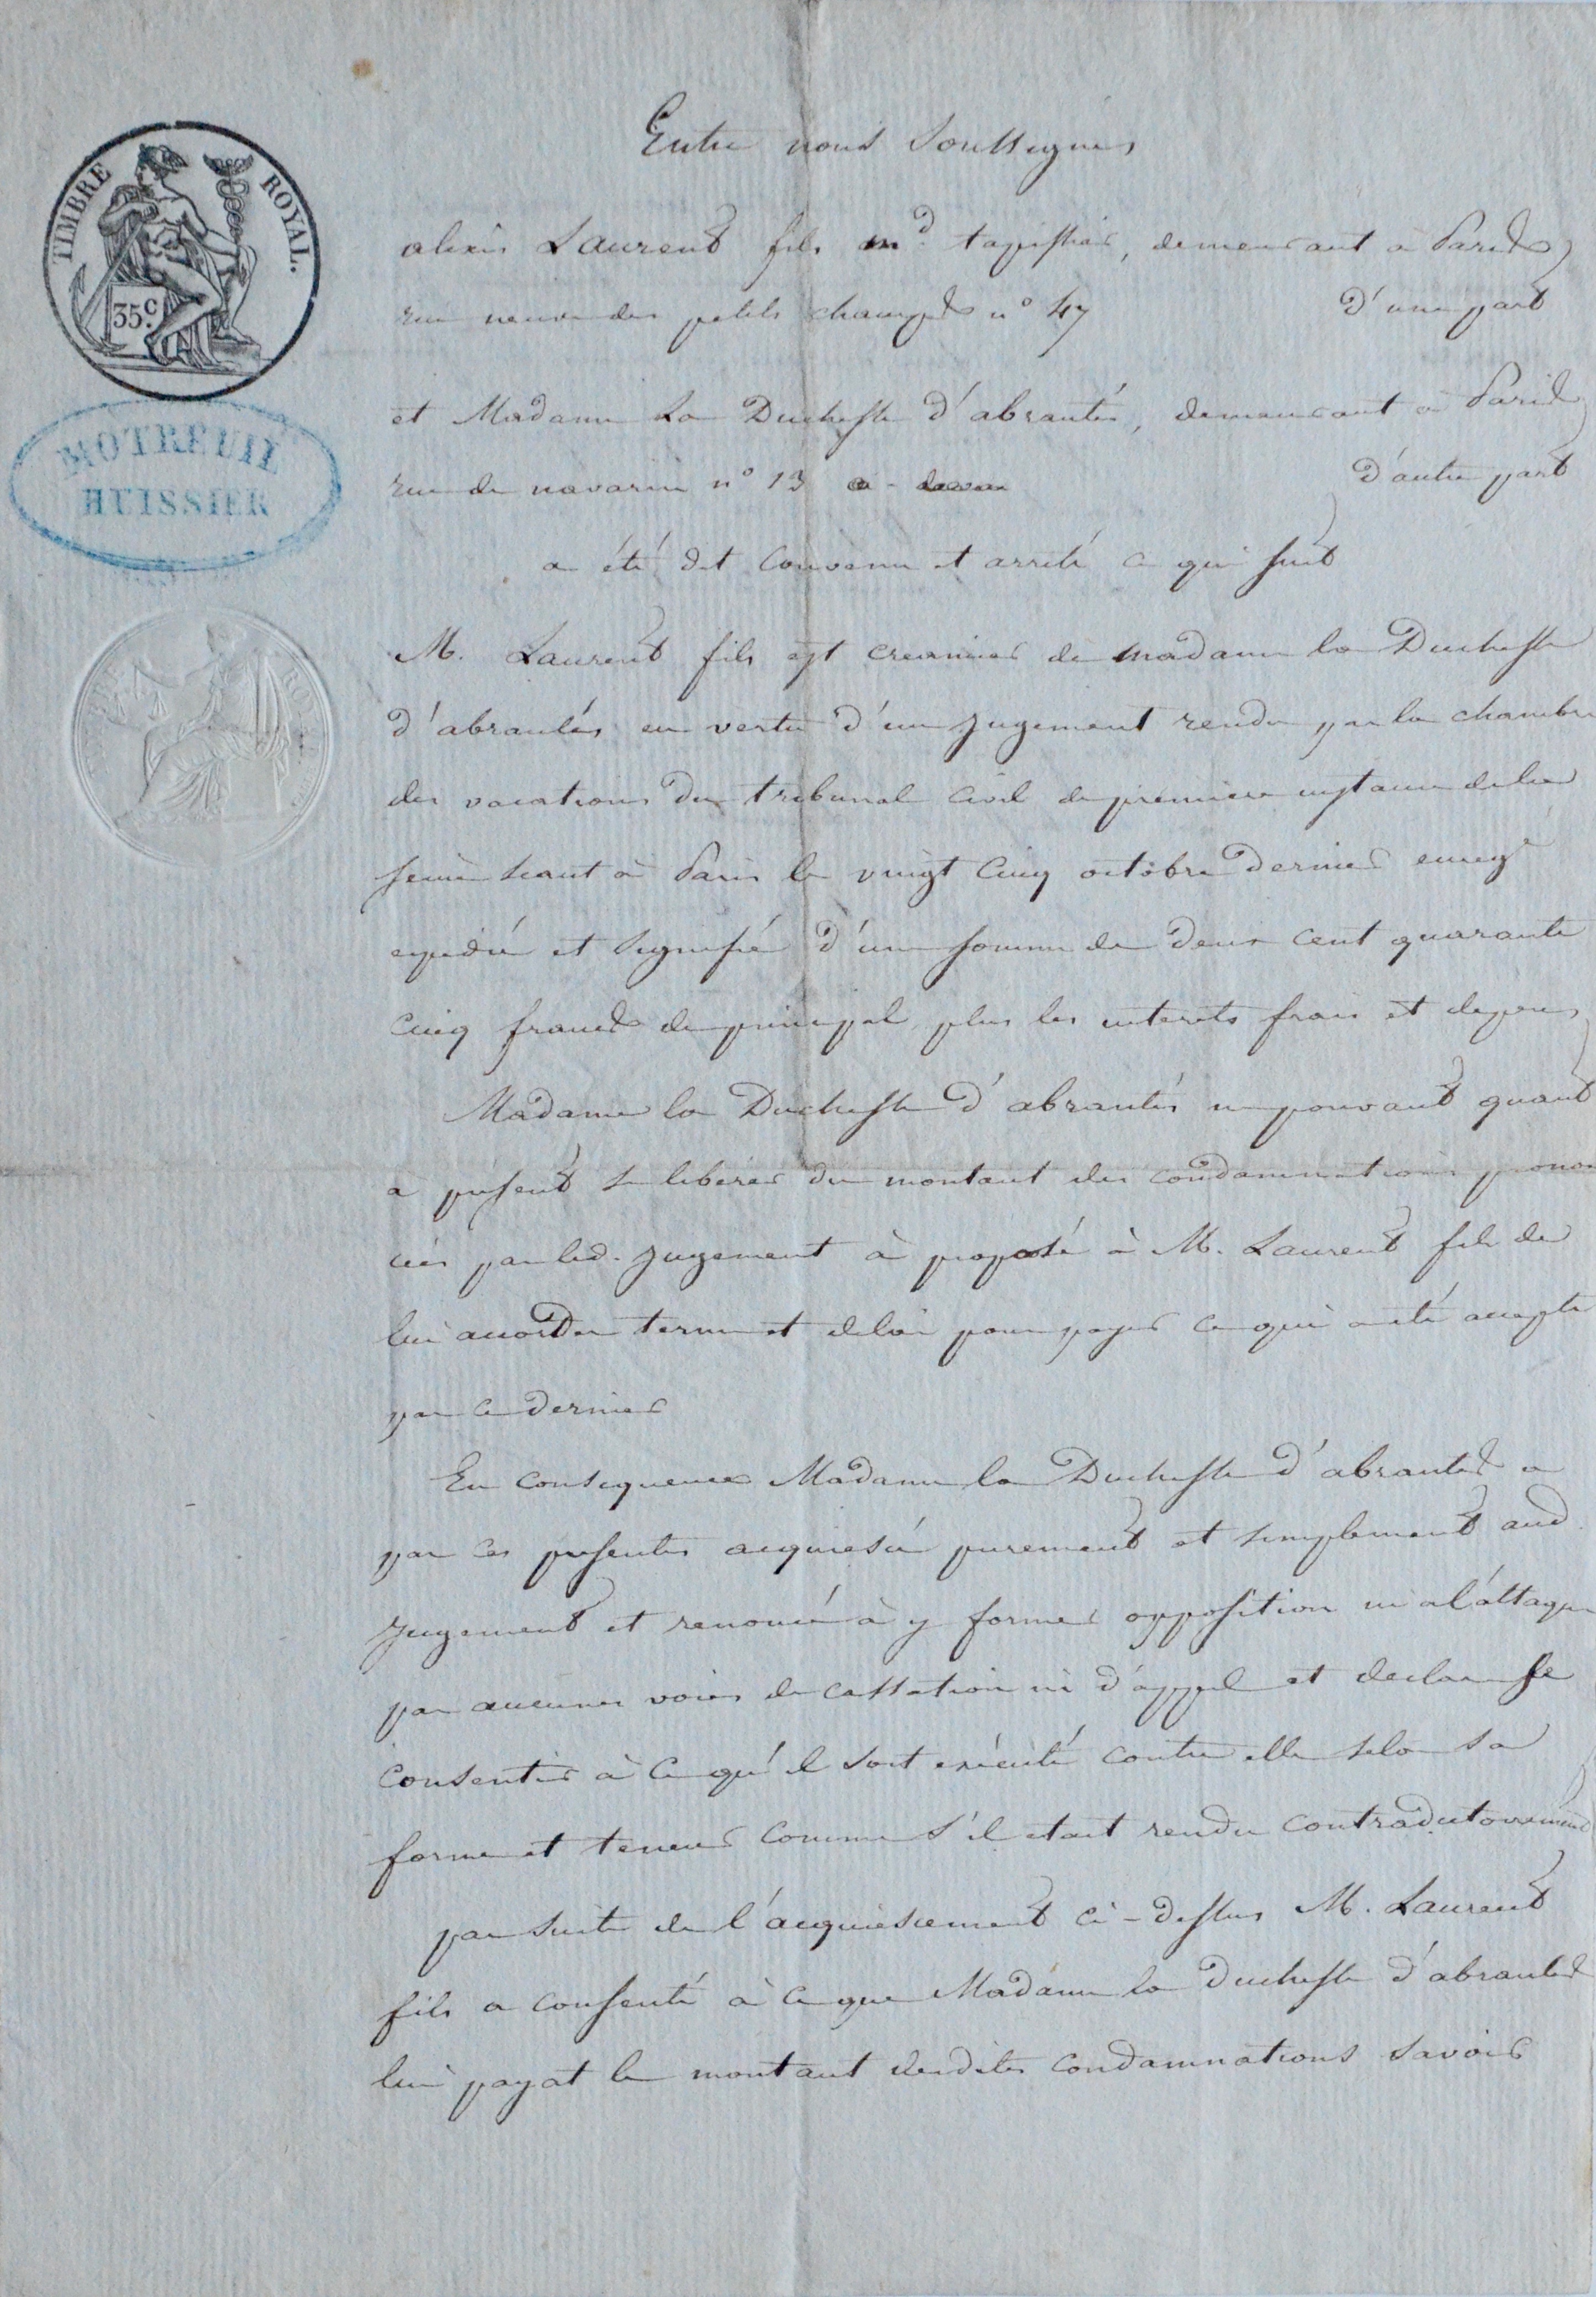 TIMBRE ROYAL.
35.c
MOTREUIL
HUISSIER
Entre nous Soussignés
alexis Laurent fils md. tapissier, demeurant à Paris
rue neuve des petits champs n° 47 D'une part
et Madame La Duchesse d'abrantès, demeurant à Paris
rue de navarin n° 13 D'autre part
a été dit Convenu et arrêté ce qui suit
M. Laurent fils est creancier de madame la Duchesse
d'abrantès en vertu d'un jugement rendu par la chambre
des vacations du tribunal Civil de premiere instance de la
seine seant à Paris le vingt Cinq octobre Dernier enregé
expedié et signifié d'une somme de Deux Cent quarante
Cinq francs de principal, plus les interets frais et depens
Madame la Duchesse d'abrantès ne pouvant quant
à present se liberer du montant des condamnations pronon
cées par led. jugement à proposé à M. Laurent fils de
lui accorder terme et delai pour payer ce qui a été accepté
par ce dernier
En consequence Madame la Duchesse d'abrantès a
par ces presentes acquiescé purement et simplement aud.
jugement et renoncé à y former opposition ni a l'attaquer
par aucunes voies de cassation ni d'appel et declare se
consentir à ce qu'il soit exécuté contre elle selon sa
forme et teneur comme s'il etait rendu contradictoirement
par suite de l'acquiescement ci-dessus M. Laurent
fils a consenti à ce que Madame la duchesse d'abrantès
lui payat le montant desdites condamnations savoir